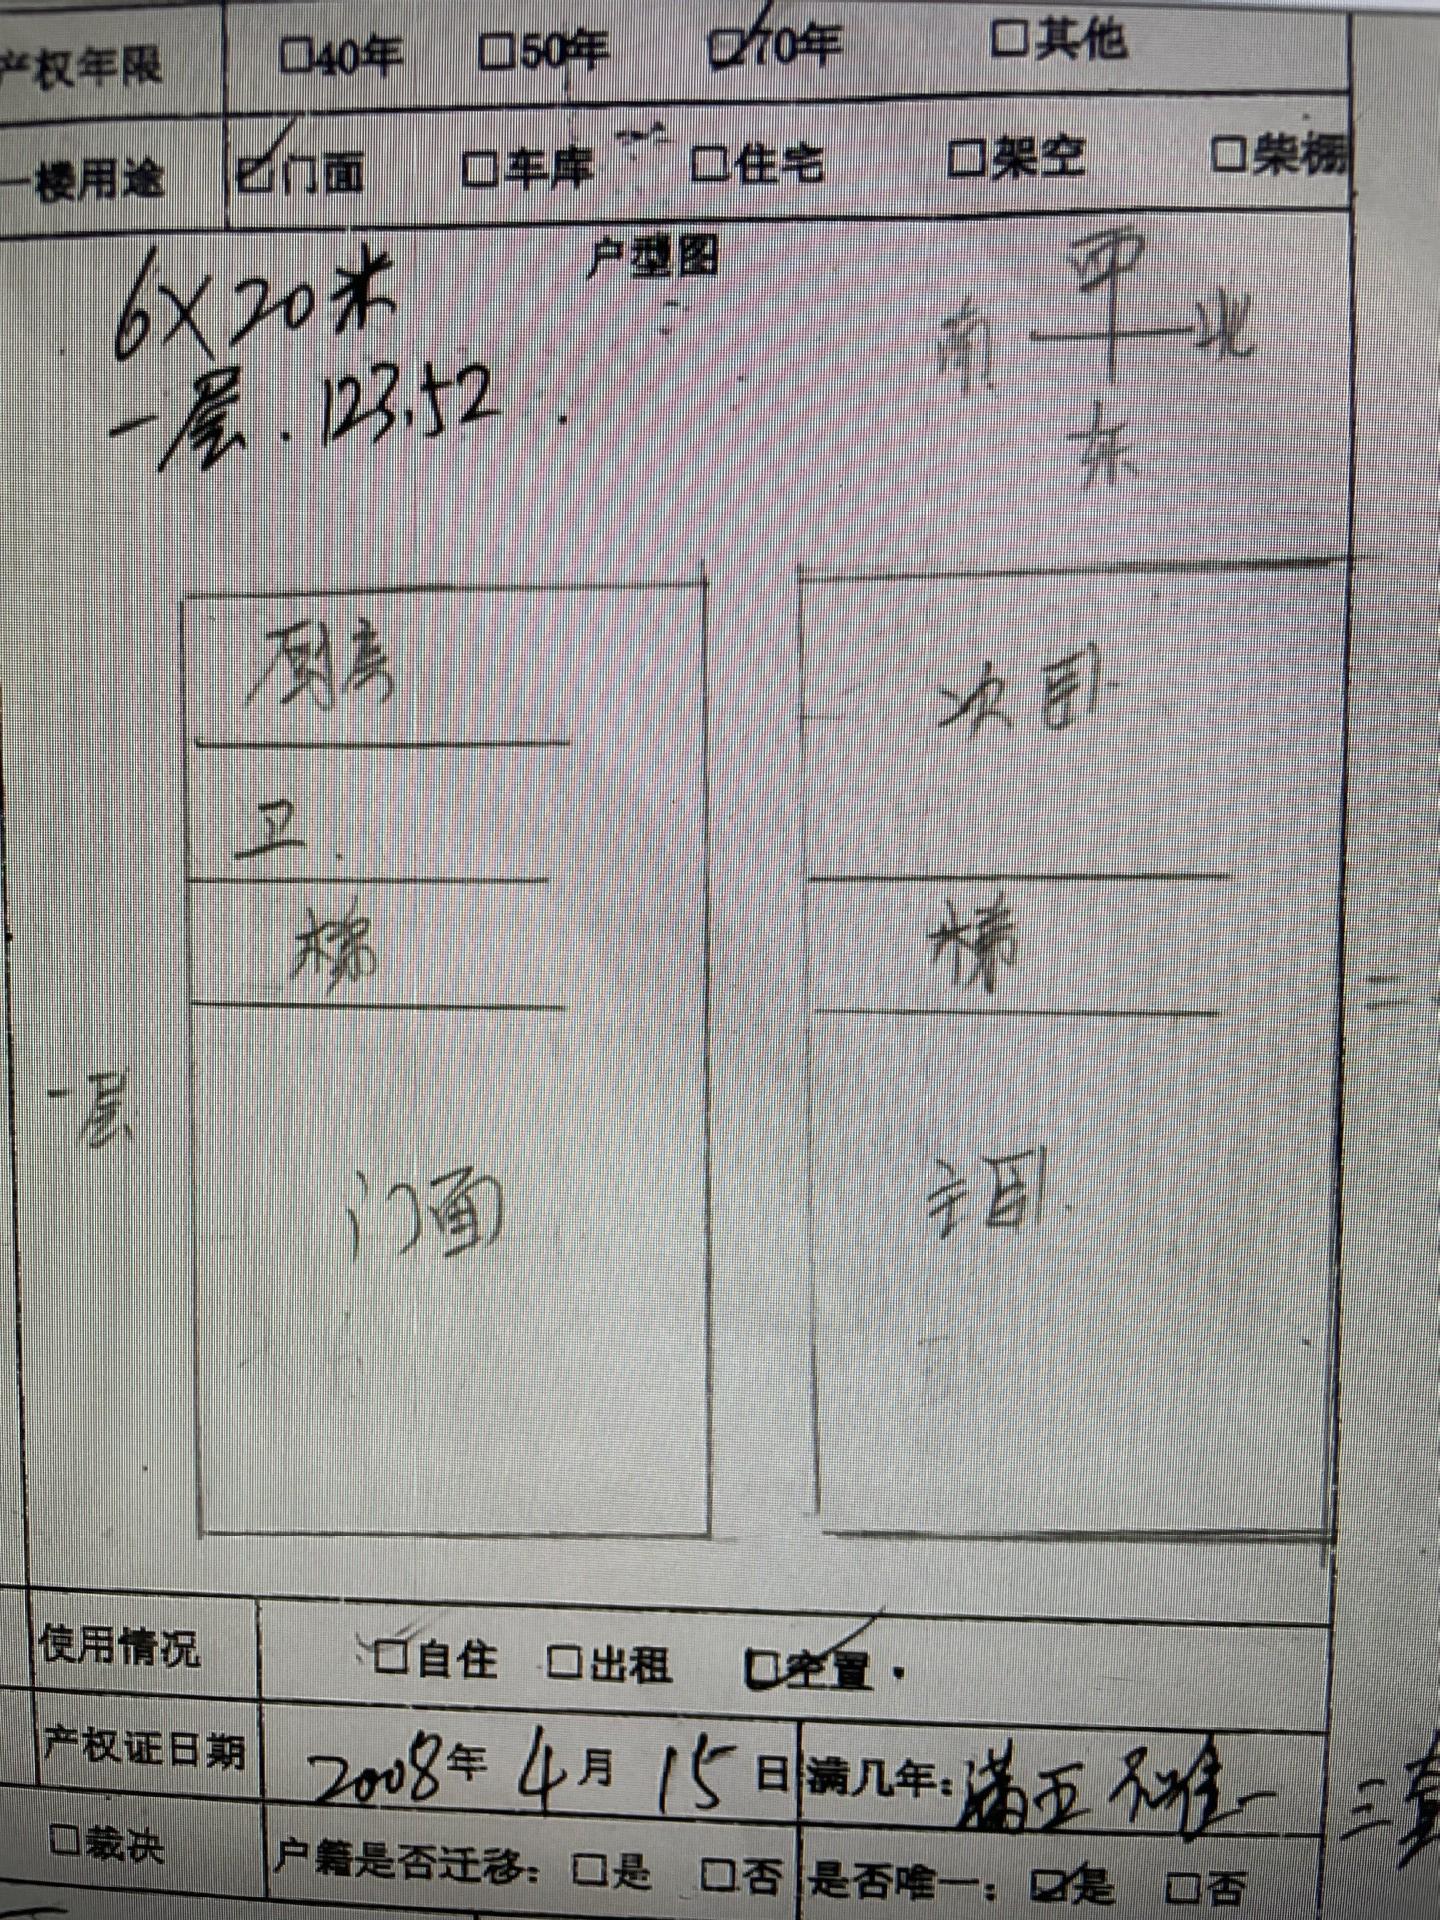 产权年限 □40年 □50年 ☑70年 □其他
一楼用途 ☑门面 □车库 □住宅 □架空 □柴棚
户型图
6×20米
一层.123.52
西
南 北
东
厨房
卫
梯
门面
一层
次卧
梯
主卧
二
使用情况 □自住 □出租 ☑空置
产权证日期 2008年4月15日 满几年:满五不唯一
□裁决 户籍是否迁移:□是 □否 是否唯一:☑是 □否